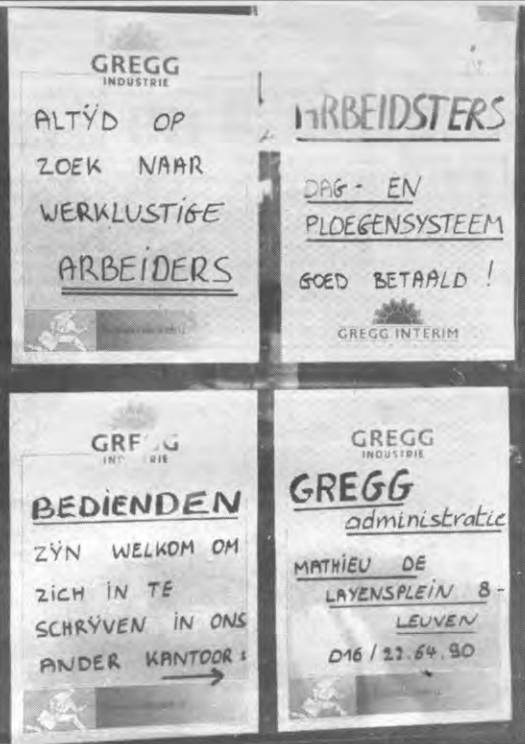 GREGG
INDUSTRIE
ALTŸD OP
ZOEK NAAR
WERKLUSTIGE
ARBEIDERS
ARBEIDSTERS
DAG- EN
PLOEGENSYSTEEM
GOED BETAALD !
GREGG INTERIM
GREGG
INDUSTRIE
BEDIENDEN
ZŸN WELKOM OM
ZICH IN TE
SCHRŸVEN IN ONS
ANDER KANTOOR :
GREGG
INDUSTRIE
GREGG
administratie
MATHIEU DE
LAYENSPLEIN 8-
LEUVEN
016 / 22.64.90